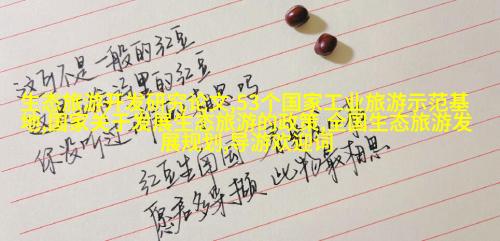 这可不是一般的红豆
里的红豆
生态旅游开发研究论文,53个国家工业旅游示范基
地,国家关于发展生态旅游的政策,全国生态旅游发
展规划,导游欢迎词
你没听过 相思吗
红豆生南国
愿君多采撷 此物最相思